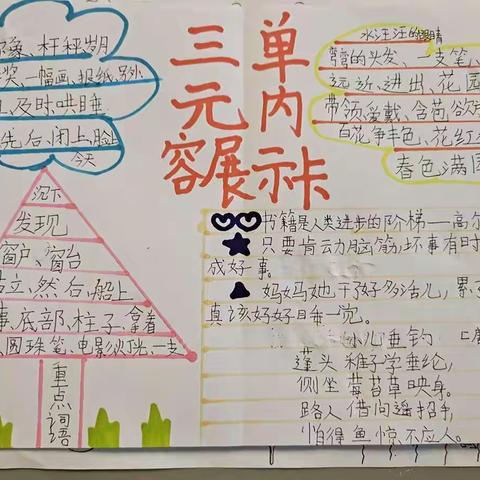 像、杆秤、岁月
奖、一幅画、报纸、另外
及时、哄睡
先后、闭上、脸
今天
三单
元内
容展示卡
水汪汪的眼睛
的头发、一支笔、
远近、进出、花园
带领、爱戴、含苞欲放
百花争丰色、花红
春色满园
沉下
发现
窗户、窗台
站立、然后、船上
事、底部、柱子、拿着
圆珠笔、电影、灯光、一支
重点词语
书籍是人类进步的阶梯——高尔
只要肯云力脑筋,坏事有时
成好事。
妈妈她干了好多活儿,累了
真该好好目垂一觉。
小儿垂钓
蓬头稚子学垂纶,
侧坐莓苔草映身。
路人借问遥招手,
怕得鱼惊不应人。